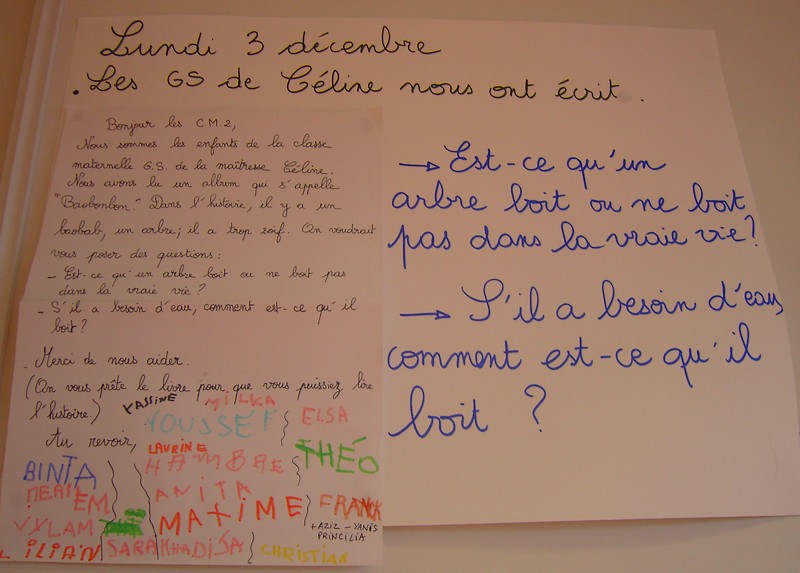 Lundi 3 décembre
. Les GS de Céline nous ont écrit.
Bonjour les C.M.2,
Nous sommes les enfants de la classe
maternelle G.S. de la maîtresse Céline.
Nous avons lu un album qui s'appelle
"Baobonbon." Dans l'histoire, il y a un
baobab, un arbre; il a trop soif. On voudrait
vous poser des questions :
- Est-ce qu'un arbre boit ou ne boit pas
dans la vraie vie ?
- S'il a besoin d'eau, comment est-ce qu'il
boit ?
- Merci de nous aider.
(On vous prête le livre pour que vous puissiez lire
l'histoire.)
Au revoir,
YASSINE MILKA
YOUSSEF ELSA
LAURINE
BINTA HAMBRE THÉO
ANITA
EM MAXIME FRANCK
VYLAM THÉ + AZIZ - YANIS
PRINCILIA
LILIAN SARA KHADISA CHRISTIAN
→ Est-ce qu'un
arbre boit ou ne boit
pas dans la vraie vie?
→ S'il a besoin d'eau,
comment est-ce qu'il
boit ?